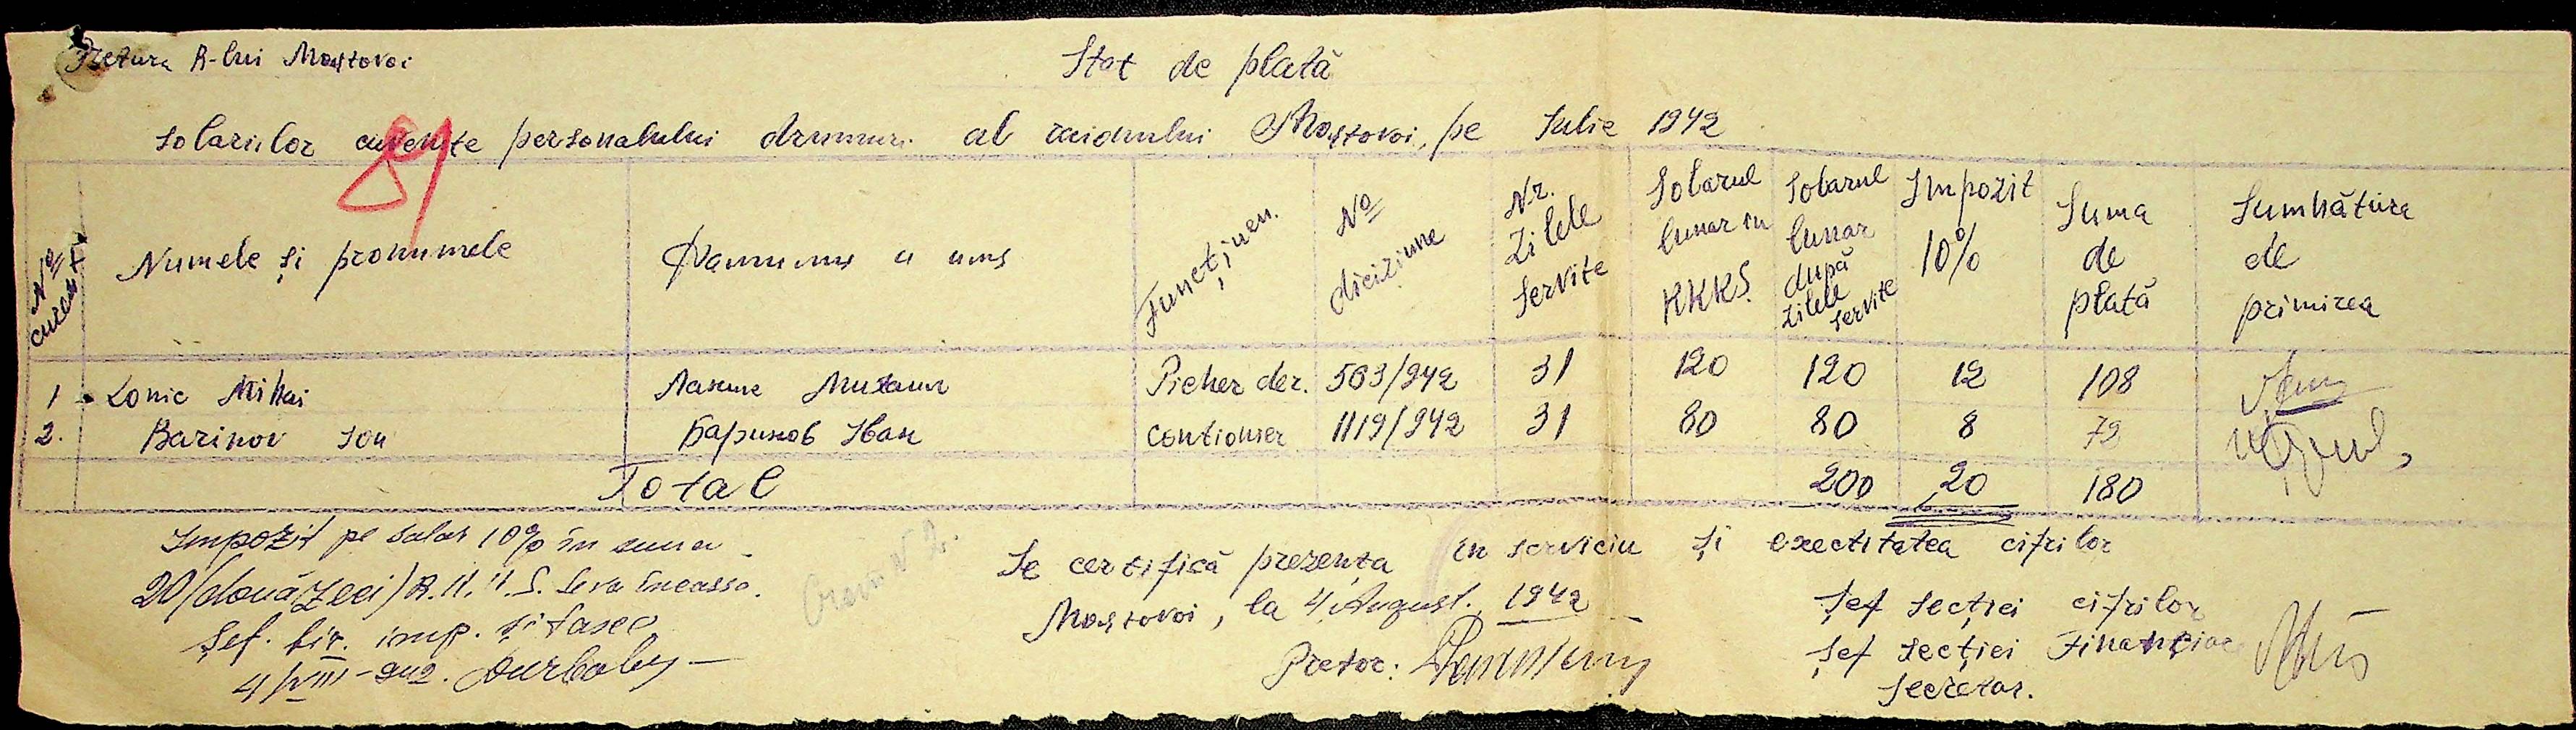 Pretura R-lui Mostovoi
Stat de plată
solariilor cuvenite personalului drumuri al raionului Mostovoi, pe Iulie 1942
89
No curent
Numele și pronumele
Фамилия и имя
Funcțiunea
No diciziune
Nr. Zilele servite
Solarul lunar in RKKS.
Solarul lunar după zilele servite
Impozit 10%
Suma de plată
Sumnătura de primirea
1 Lonic Mihai Михаил Picher der. 563/942 31 120 120 12 108
2. Barinov Ion Баринов Иван contionier 1119/942 31 80 80 8 72
Total 200 20 180
Impozit pe salar 10% în suma
20 (douăzeci) R.K.K.S. se va încassa.
Șef. bir. imp. și taxeo
4/VIII-942.
Se certifică prezența în serviciu și exectitatea cifrilor
Mostovoi, la 4 August. 1942
Pretor:
Șef secției cifrilor
Șef secției Financiar
Secretar.